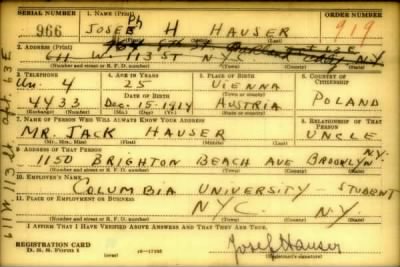 SERIAL NUMBER 1. NAME (Print) ORDER NUMBER
966 JOSEPH H HAUSER 919
(First) (Middle) (Last)
2. ADDRESS (Print)
611 W 113 ST NYC NY
(Number and street or R. F. D. number) (Town) (County) (State)
3. TELEPHONE 4. AGE IN YEARS 5. PLACE OF BIRTH 6. COUNTRY OF CITIZENSHIP
Un. 4 25 VIENNA
DATE OF BIRTH
4433 Dec. 15. 1914 AUSTRIA POLAND
(Exchange) (Number) (Mo.) (Day) (Yr.) (State or country)
7. NAME OF PERSON WHO WILL ALWAYS KNOW YOUR ADDRESS 8. RELATIONSHIP OF THAT PERSON
MR. JACK HAUSER UNCLE
(Mr., Mrs., Miss) (First) (Middle) (Last)
9. ADDRESS OF THAT PERSON
1150 BRIGHTON BEACH AVE BROOKLYN N.Y.
(Number and street or R. F. D. number) (Town) (County) (State)
10. EMPLOYER'S NAME
COLUMBIA UNIVERSITY - STUDENT
11. PLACE OF EMPLOYMENT OR BUSINESS
NYC. NY
(Number and street or R. F. D. number) (Town) (County) (State)
I AFFIRM THAT I HAVE VERIFIED ABOVE ANSWERS AND THAT THEY ARE TRUE.
REGISTRATION CARD
D. S. S. Form 1 Josef Hauser
(Registrant's signature)
611 W 113 St apt 63E